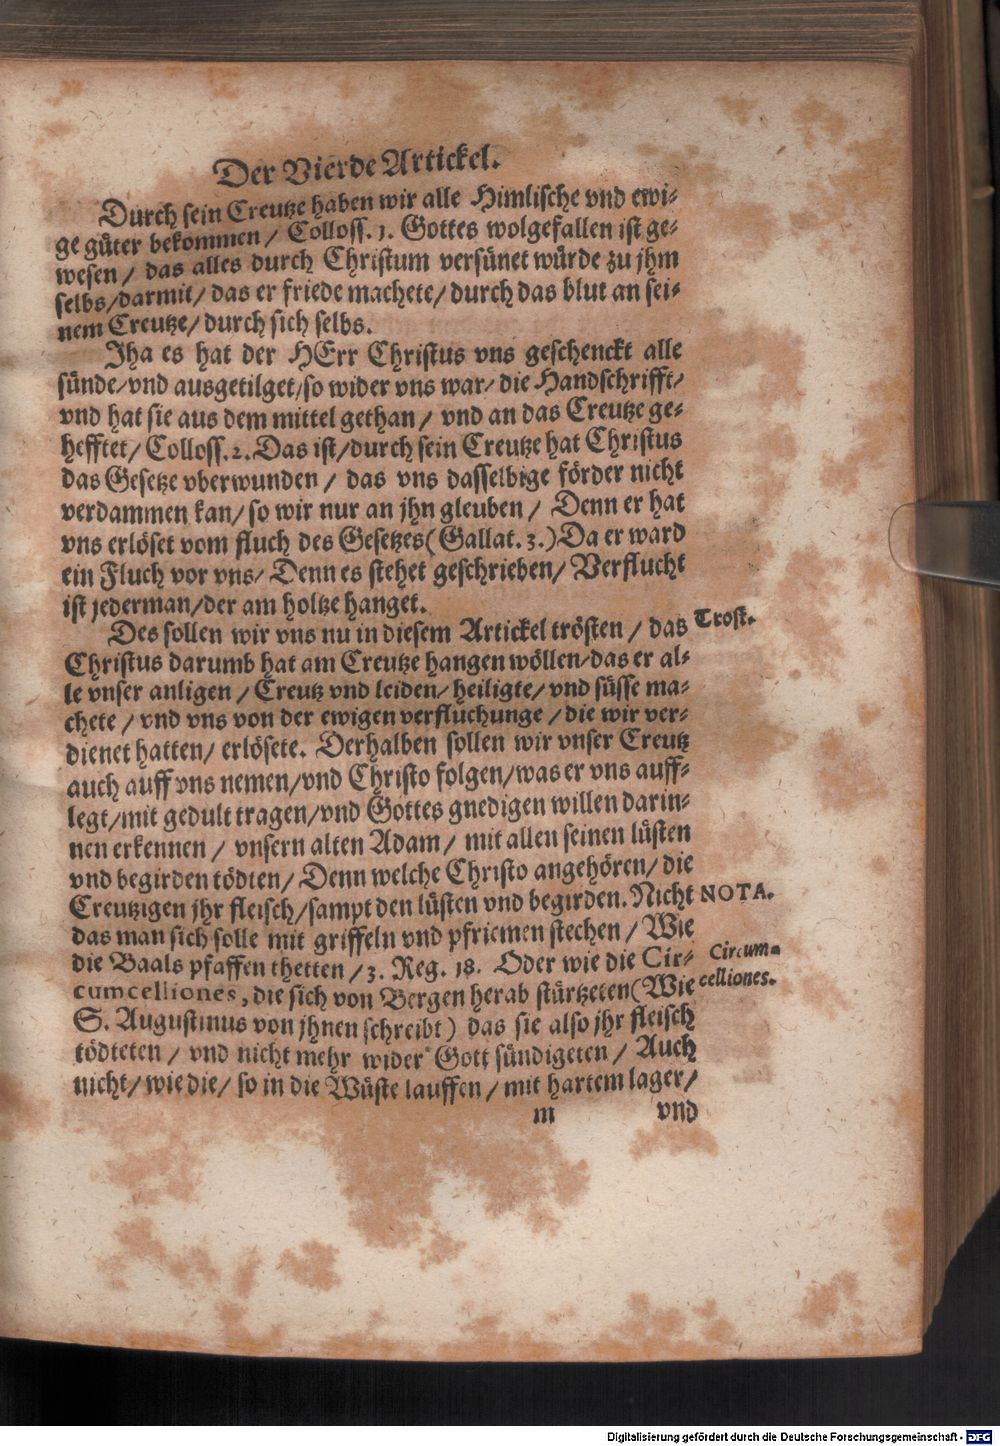 Der Vierde Artickel.
Durch sein Creutze haben wir alle Himlische vnd ewi-
ge güter bekommen / Colloss. 1. Gottes wolgefallen ist ge-
wesen / das alles durch Christum versünet würde zu jhm
selbs/darmit/ das er friede machete/ durch das blut an sei-
nem Creutze/ durch sich selbs.
Jha es hat der HErr Christus vns geschenckt alle
sünde/vnd ausgetilget/so wider vns war/ die Handschrifft/
vnd hat sie aus dem mittel gethan / vnd an das Creutze ge-
hefftet/ Colloss. 2. Das ist/durch sein Creutze hat Christus
das Gesetze vberwunden / das vns dasselbige förder nicht
verdammen kan/ so wir nur an jhn gleuben / Denn er hat
vns erlöset vom fluch des Gesetzes( Gallat. 3.) Da er ward
ein Fluch vor vns/ Denn es stehet geschrieben/ Verflucht
ist jederman/der am holtze hanget.
Des sollen wir vns nu in diesem Artickel trösten / das
Trost.
Christus darumb hat am Creutze hangen wöllen/das er al-
le vnser anligen / Creutz vnd leiden/ heiligte/ vnd süsse ma-
chete / vnd vns von der ewigen verfluchunge / die wir ver-
dienet hatten/ erlösete. Derhalben sollen wir vnser Creutz
auch auff vns nemen/vnd Christo folgen/was er vns auff-
legt/mit gedult tragen/vnd Gottes gnedigen willen darin-
nen erkennen / vnsern alten Adam / mit allen seinen lüsten
vnd begirden tödten/ Denn welche Christo angehören/ die
Creutzigen jhr fleisch/sampt den lüsten vnd begirden. Nicht
NOTA.
das man sich solle mit griffeln vnd pfriemen stechen / Wie
die Baals pfaffen thetten / 3. Reg. 18. Oder wie die Cir-
Circum-
cumcelliones, die sich von Bergen herab stürtzeten( Wie
celliones.
S. Augustinus von jhnen schreibt) das sie also jhr fleisch
tödteten / vnd nicht mehr wider Gott sündigeten / Auch
nicht/ wie die/ so in die Wüste lauffen / mit hartem lager/
m vnd
Digitalisierung gefördert durch die Deutsche Forschungsgemeinschaft - DFG